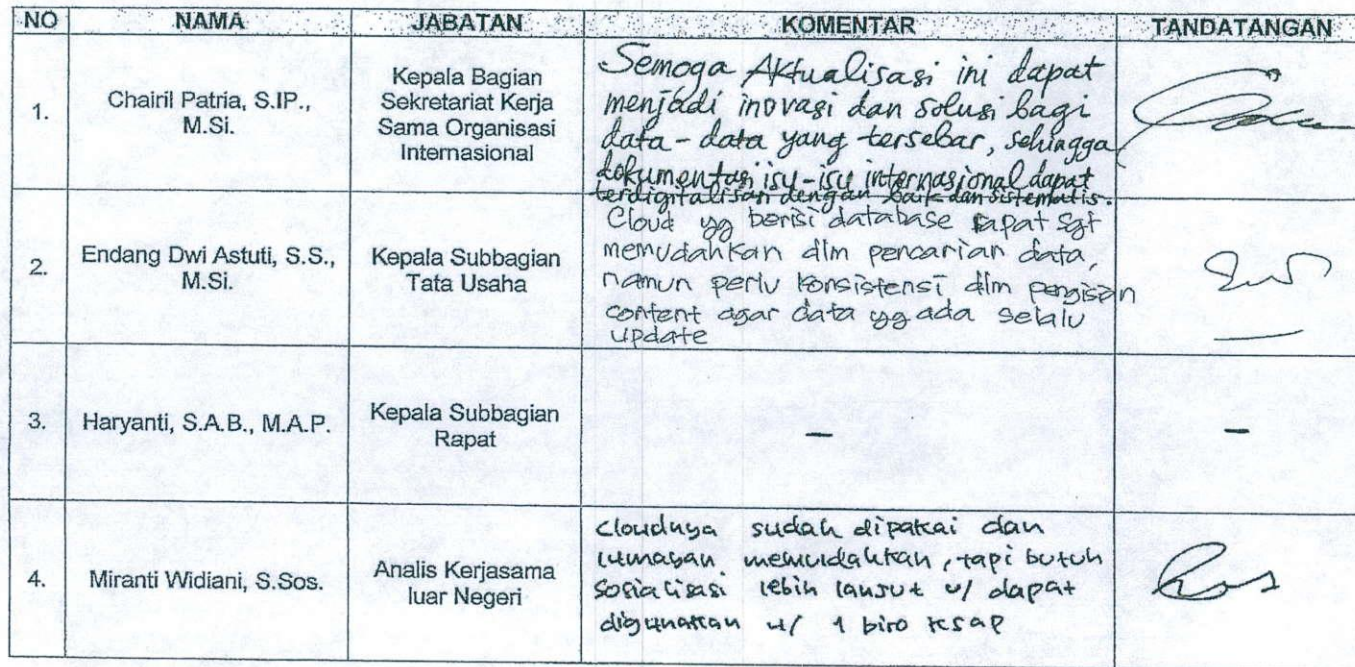 NO NAMA JABATAN KOMENTAR TANDATANGAN
1.
Chairil Patria, S.IP.,
M.Si.
Kepala Bagian
Sekretariat Kerja
Sama Organisasi
Internasional
Semoga Aktualisasi ini dapat
menjadi inovasi dan solusi bagi
data-data yang tersebar, sehingga
dokumentasi isu-isu internasional dapat
terdigitalisasi dengan baik dan sistematis.
2.
Endang Dwi Astuti, S.S.,
M.Si.
Kepala Subbagian
Tata Usaha
Cloud yg berisi database rapat sgt
memudahkan dlm pencarian data,
namun perlu konsistensi dlm pengisian
content agar data yg ada selalu
update
3.
Haryanti, S.A.B., M.A.P.
Kepala Subbagian
Rapat
-
-
4.
Miranti Widiani, S.Sos.
Analis Kerjasama
luar Negeri
cloudnya sudah dipakai dan
lumayan memudahkan, tapi butuh
sosialisasi lebih lanjut u/ dapat
digunakan u/ 1 biro ksap